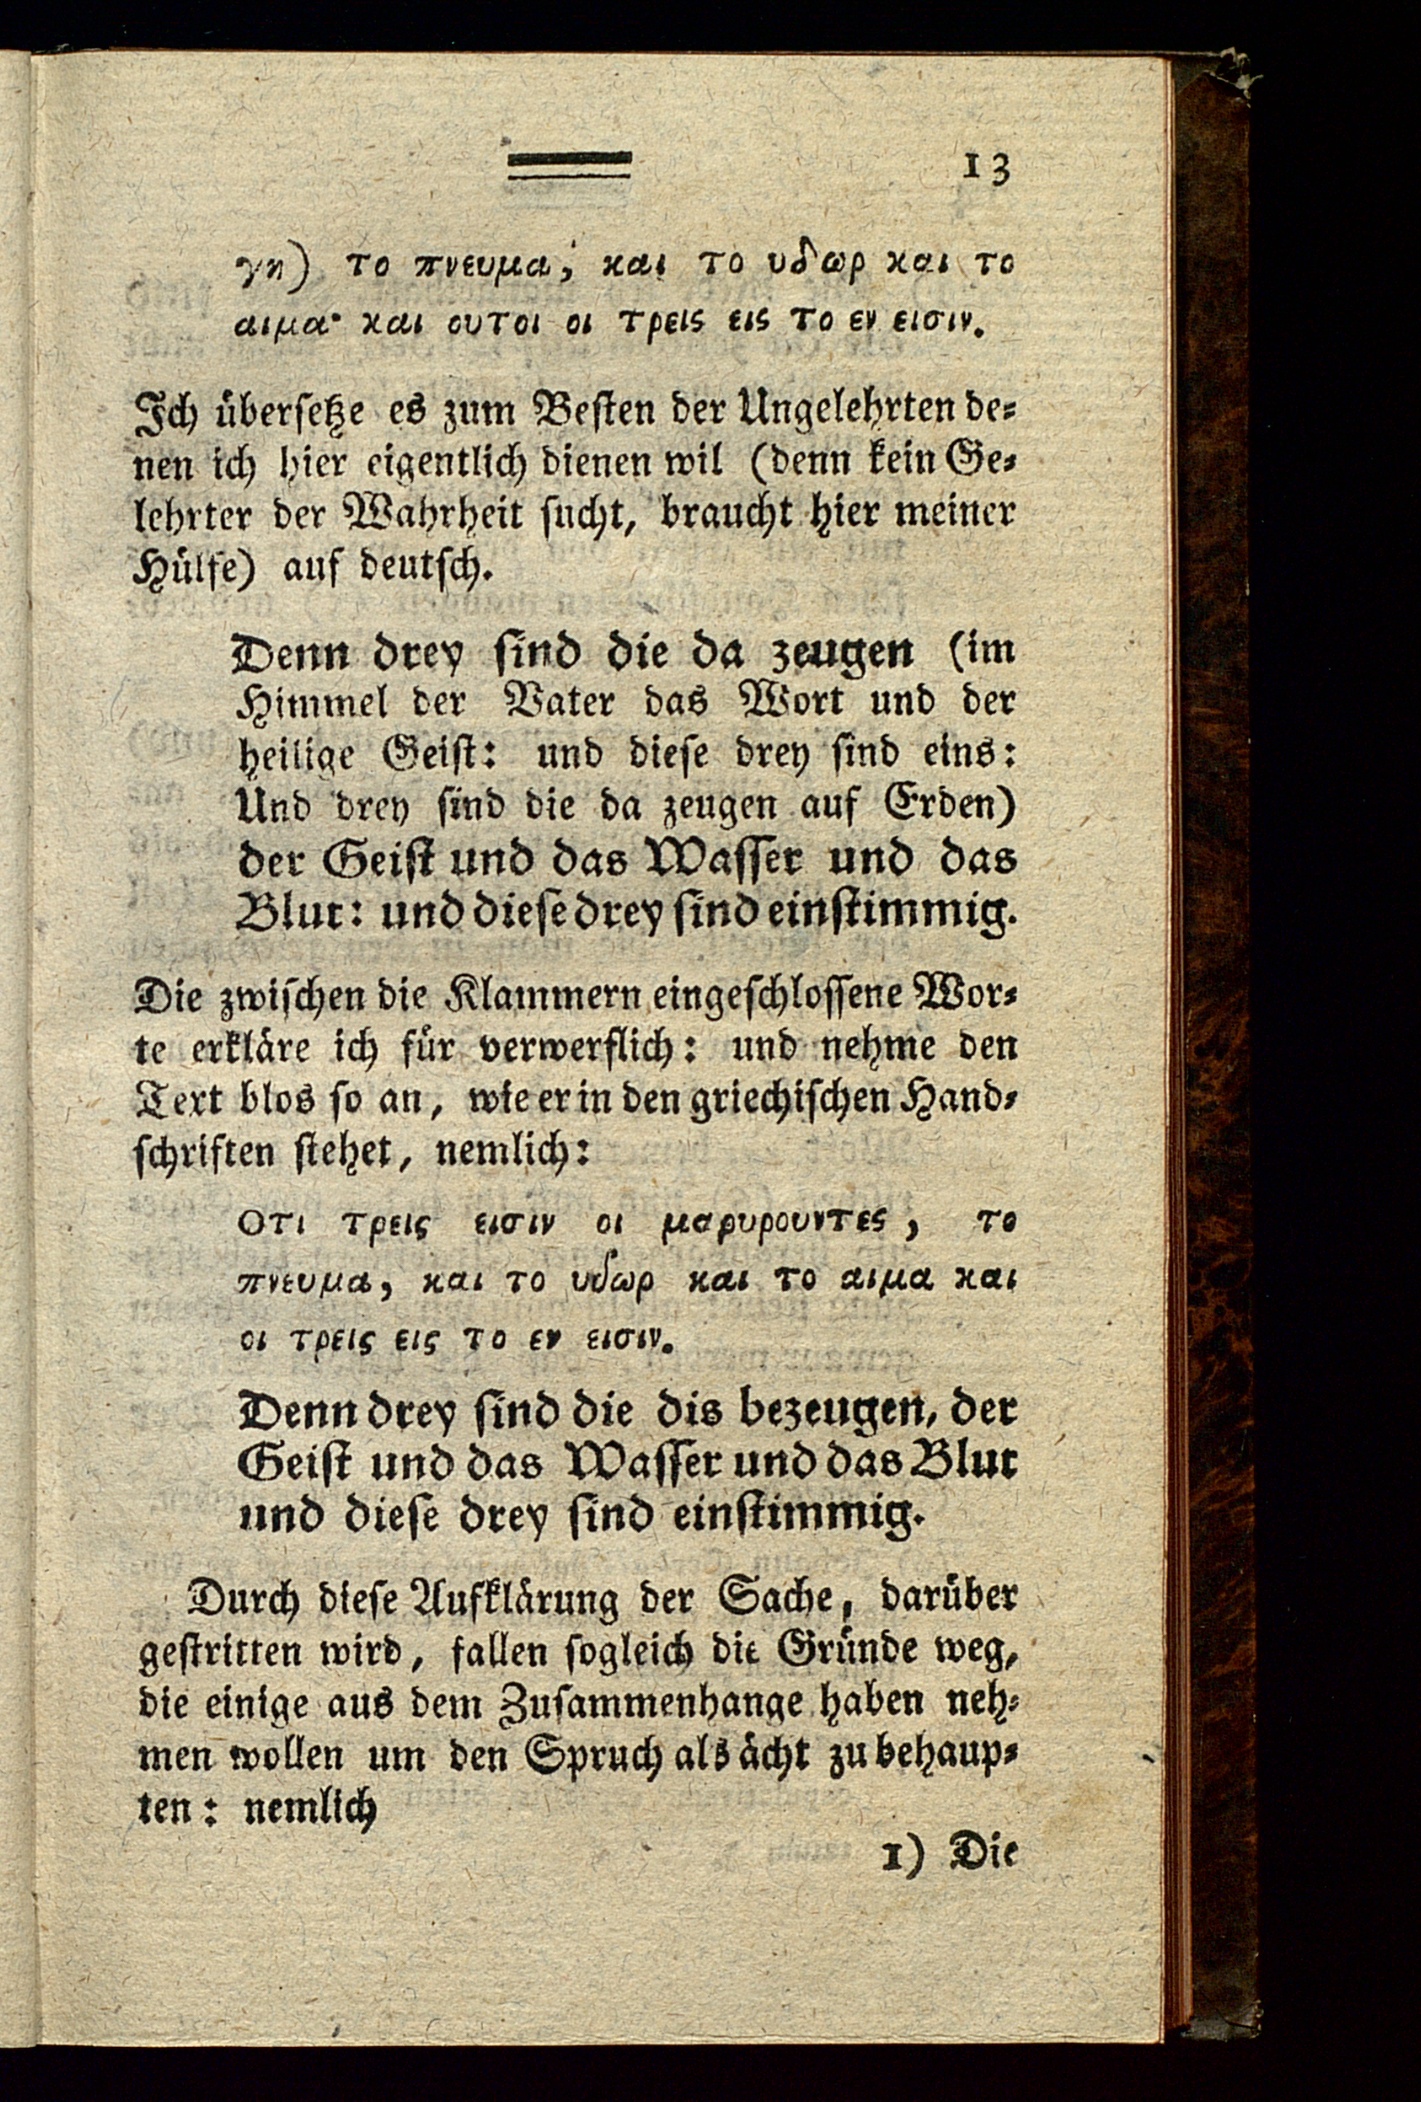 13
γη) το πνευμα, και το υδωρ και το
αιμα· και ουτοι οι τρεις εις το εν εισιν.
Ich übersetze es zum Besten der Ungelehrten de⸗
nen ich hier eigentlich dienen wil (denn kein Ge⸗
lehrter der Wahrheit sucht, braucht hier meiner
Hülfe) auf deutsch.
Denn drey sind die da zeugen (im
Himmel der Vater das Wort und der
heilige Geist: und diese drey sind eins:
Und drey sind die da zeugen auf Erden)
der Geist und das Wasser und das
Blut: und diese drey sind einstimmig.
Die zwischen die Klammern eingeschlossene Wor⸗
te erkläre ich für verwerflich: und nehme den
Text blos so an, wie er in den griechischen Hand⸗
schriften stehet, nemlich:
Οτι τρεις εισιν οι μαρυρουντες, το
πνευμα, και το υδωρ και το αιμα και
οι τρεις εις το εν εισιν.
Denn drey sind die dis bezeugen, der
Geist und das Wasser und das Blut
und diese drey sind einstimmig.
Durch diese Aufklärung der Sache, darüber
gestritten wird, fallen sogleich die Gründe weg,
die einige aus dem Zusammenhange haben neh⸗
men wollen um den Spruch als ächt zu behaup⸗
ten: nemlich
1) Die